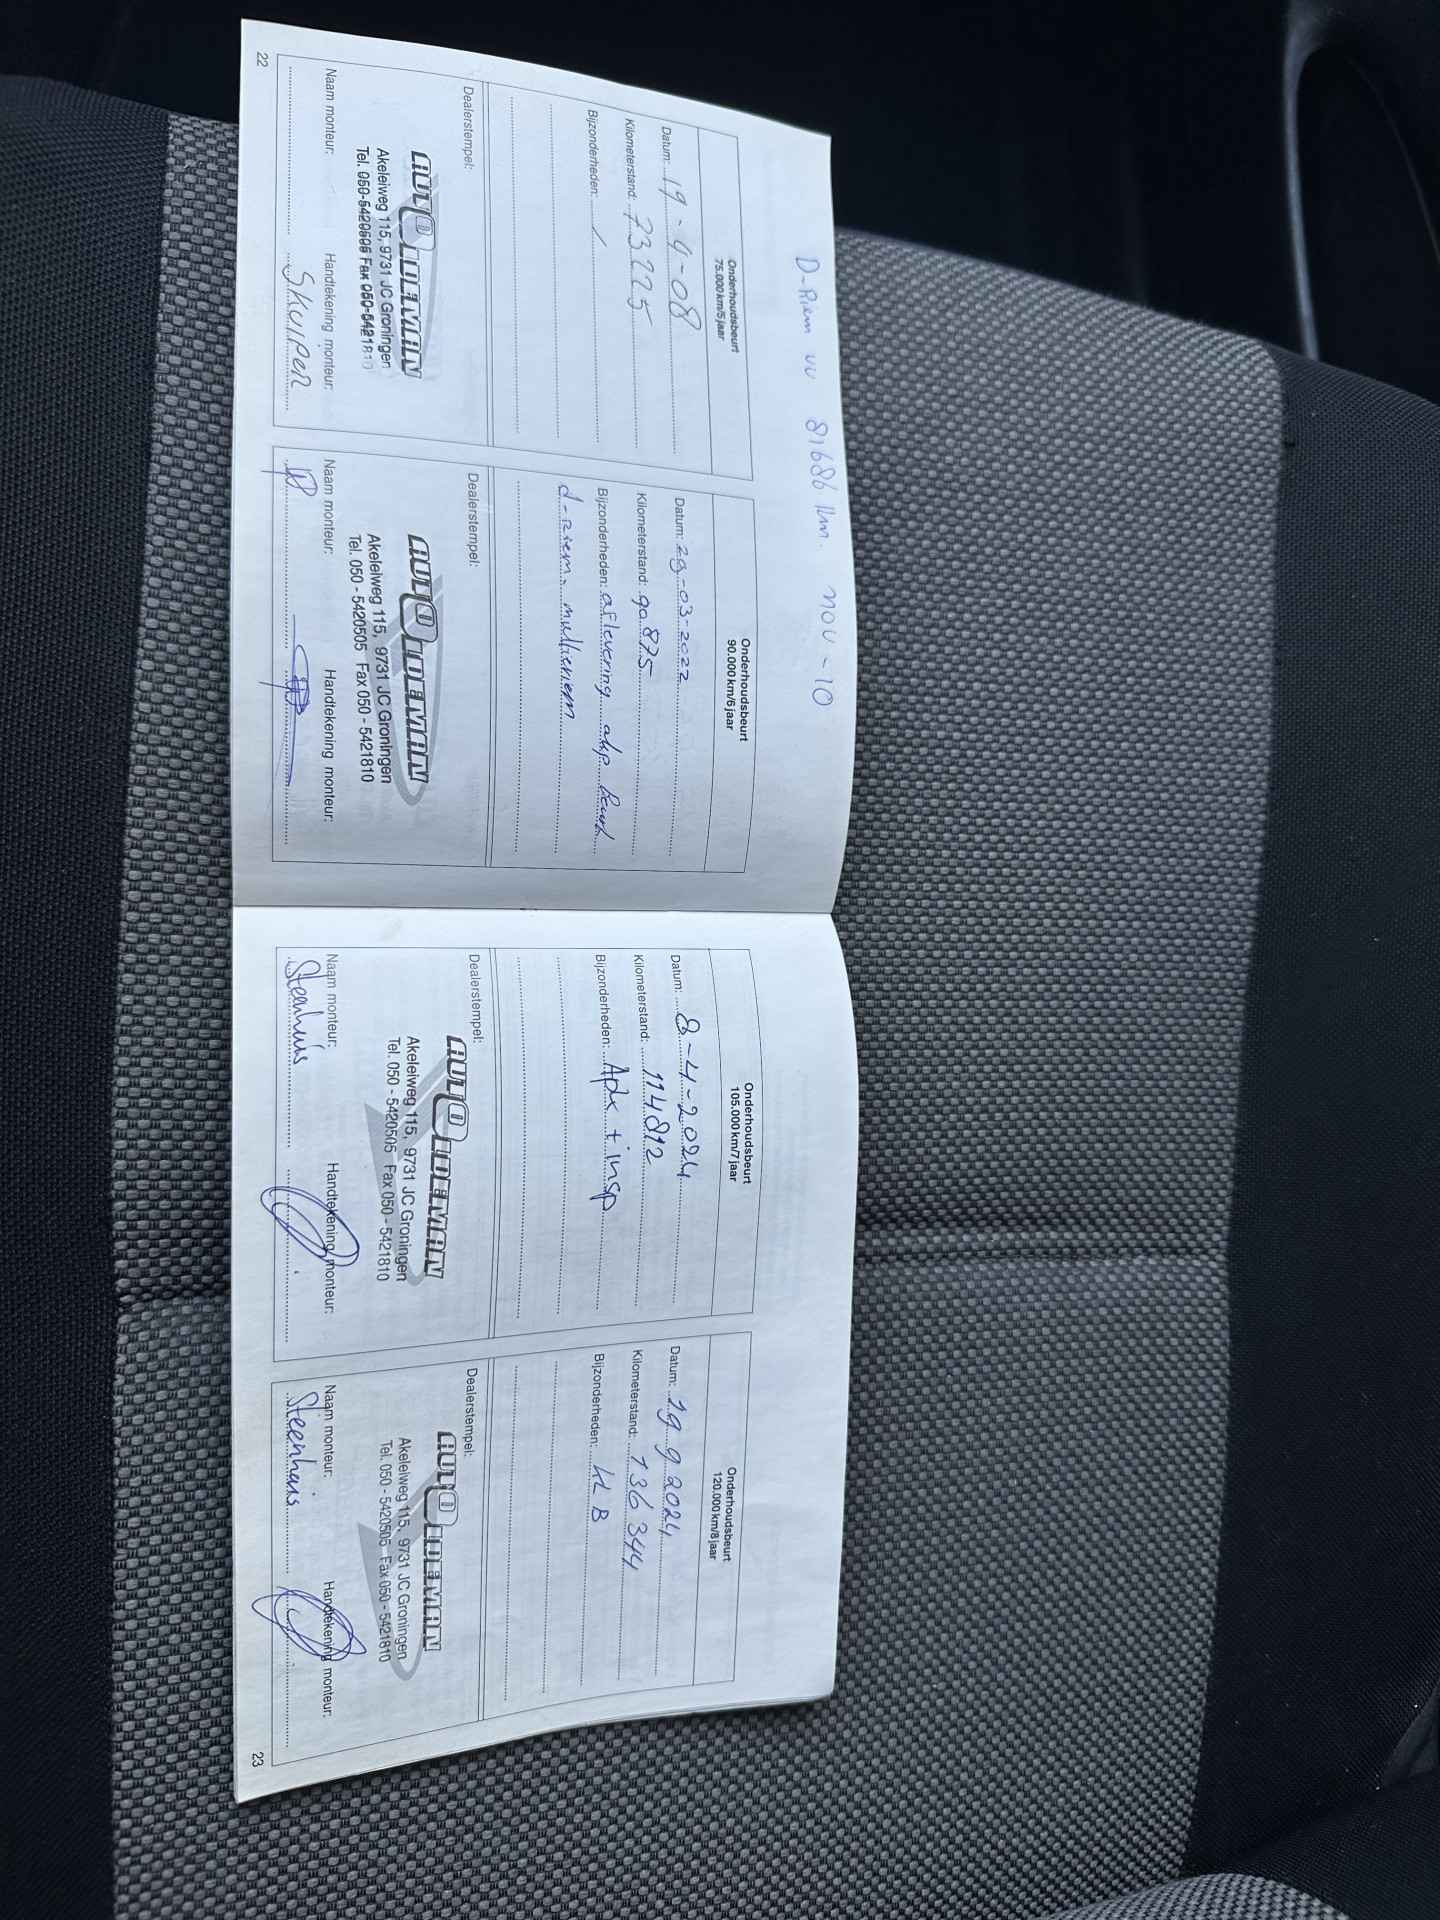 D-Riem vv 81686 km. nov - 10
Onderhoudsbeurt
75.000 km/5 jaar
Datum: 19-4-08
Kilometerstand: 73.225
Bijzonderheden: /
Dealerstempel:
AUTO IDEMAN
Akeleiweg 115, 9731 JC Groningen
Tel. 050-5420505 Fax 050-5421810
Naam monteur: Handtekening monteur:
S Kuiper
22
Onderhoudsbeurt
90.000 km/6 jaar
Datum: 29-03-2022
Kilometerstand: 90.875
Bijzonderheden: aflevering akp beurt
d-riem. multieriem
Dealerstempel:
AUTO IDEMAN
Akeleiweg 115, 9731 JC Groningen
Tel. 050 - 5420505 Fax 050 - 5421810
Naam monteur: Handtekening monteur:
Onderhoudsbeurt
105.000 km/7 jaar
Datum: 8-4-2024
Kilometerstand: 114812
Bijzonderheden: Apk + insp
Dealerstempel:
AUTO IDEMAN
Akeleiweg 115, 9731 JC Groningen
Tel. 050 - 5420505 Fax 050 - 5421810
Naam monteur: Handtekening monteur:
Steenhuis
Onderhoudsbeurt
120.000 km/8 jaar
Datum: 19 9 2024
Kilometerstand: 136 344
Bijzonderheden: kl B
Dealerstempel:
AUTO IDEMAN
Akeleiweg 115, 9731 JC Groningen
Tel. 050 - 5420505 Fax 050 - 5421810
Naam monteur: Handtekening monteur:
Steenhuis
23